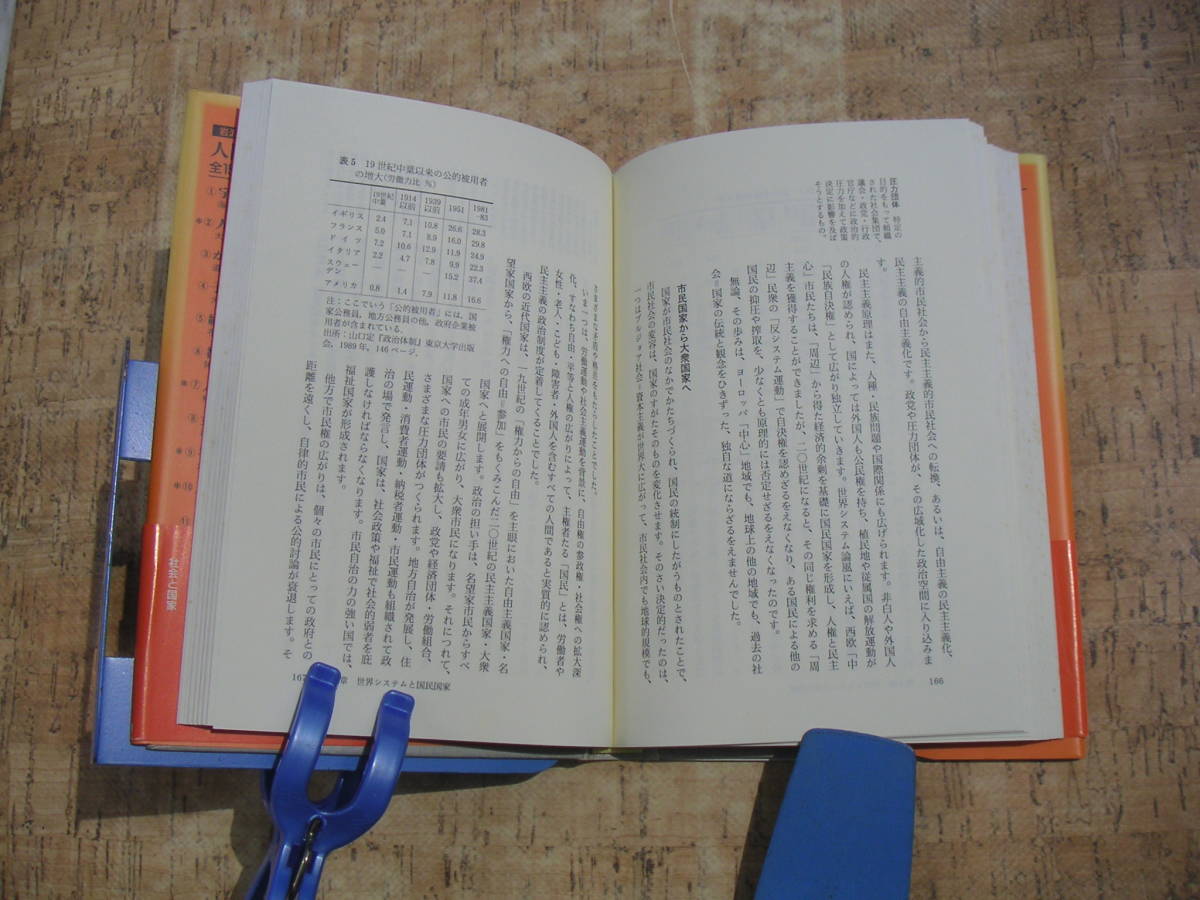 圧力団体 特定の
目的をもって組織
された社会集団で、
議会・政党・行政
官庁などに政治的
圧力を加えて政策
決定に影響を及ぼ
そうとするもの。
主義的市民社会から民主主義的市民社会への転換、あるいは、自由主義の民主主義化、
民主主義の自由主義化です。政党や圧力団体が、その広域化した政治空間に入り込みま
す。
民主主義原理はまた、人種・民族問題や国際関係にも広げられます。非白人や外国人
の人権が認められ、国によっては外国人も公民権を持ち、植民地や従属国の解放運動が
「民族自決権」として広がり独立していきます。世界システム論風にいえば、西欧「中
心」市民たちは、「周辺」から得た経済的余剰を基礎に国民国家を形成し、人権と民主
主義を獲得することができましたが、二〇世紀になると、その同じ権利を求める「周
辺」民衆の「反システム運動」で自決権を認めざるをえなくなり、ある国民による他の
国民の抑圧や搾取を、少なくとも原理的には否定せざるをえなくなったのです。
無論、その歩みは、ヨーロッパ「中心」地域でも、地球上の他の地域でも、過去の社
会=国家の伝統と観念をひきずった、独自な道にならざるをえませんでした。
市民国家から大衆国家へ
国家が市民社会のなかでかたちづくられ、国民の統制にしたがうものとされたことで、
市民社会の変容は、国家のすがたそのものを変化させます。そのさい決定的だったのは、
一つはブルジョア社会=資本主義が世界大に広がって、市民社会内でも地球的規模でも、
166
表5 19世紀中葉以来の公的被用者
の増大(労働力比 %)
19世紀中葉 1914以前 1939以前 1951 1981-83
イギリス 2.4 7.1 10.8 26.6 28.3
フランス 5.0 7.1 8.9 16.0 29.8
ドイツ 7.2 10.6 12.9 11.9 24.9
イタリア 2.2 4.7 7.8 9.9 22.3
スウェーデン — — — 15.2 37.4
アメリカ 0.8 1.4 7.9 11.8 16.6
注:ここでいう「公的被用者」には、国
家公務員、地方公務員の他、政府企業被
用者が含まれている.
出所:山口定『政治体制』東京大学出版
会, 1989年, 146ページ.
いま一つは、労働運動や社会主義運動を背景に、自由権の参政権・社会権への拡大深
化、すなわち自由・平等と人権の広がりによって、主権者たる「国民」とは、労働者や
女性・老人・こども・障害者・外国人を含むすべての人間であると実質的に認められ、
民主主義の政治制度が定着してくることでした。
西欧の近代国家は、一九世紀の「権力からの自由」を主眼においた自由主義国家・名
望家国家から、「権力への自由=参加」をもくみこんだ二〇世紀の民主主義国家・大衆
国家へと展開します。政治の担い手は、名望家市民からすべ
ての成年男女に広がり、大衆市民になります。それにつれて、
国家への市民の要請も拡大し、政党や経済団体・労働組合、
さまざまな圧力団体がつくられます。地方自治が発展し、住
民運動・消費者運動・納税者運動・市民運動も組織されて政
治の場で発言し、国家は、社会政策や福祉で社会的弱者を庇
護しなければならなくなります。市民自治の力の強い国では、
福祉国家が形成されます。
他方で市民権の広がりは、個々の市民にとっての政府との
距離を遠くし、自律的市民による公的討論が衰退します。そ
167
章 世界システムと国民国家
社会と国家